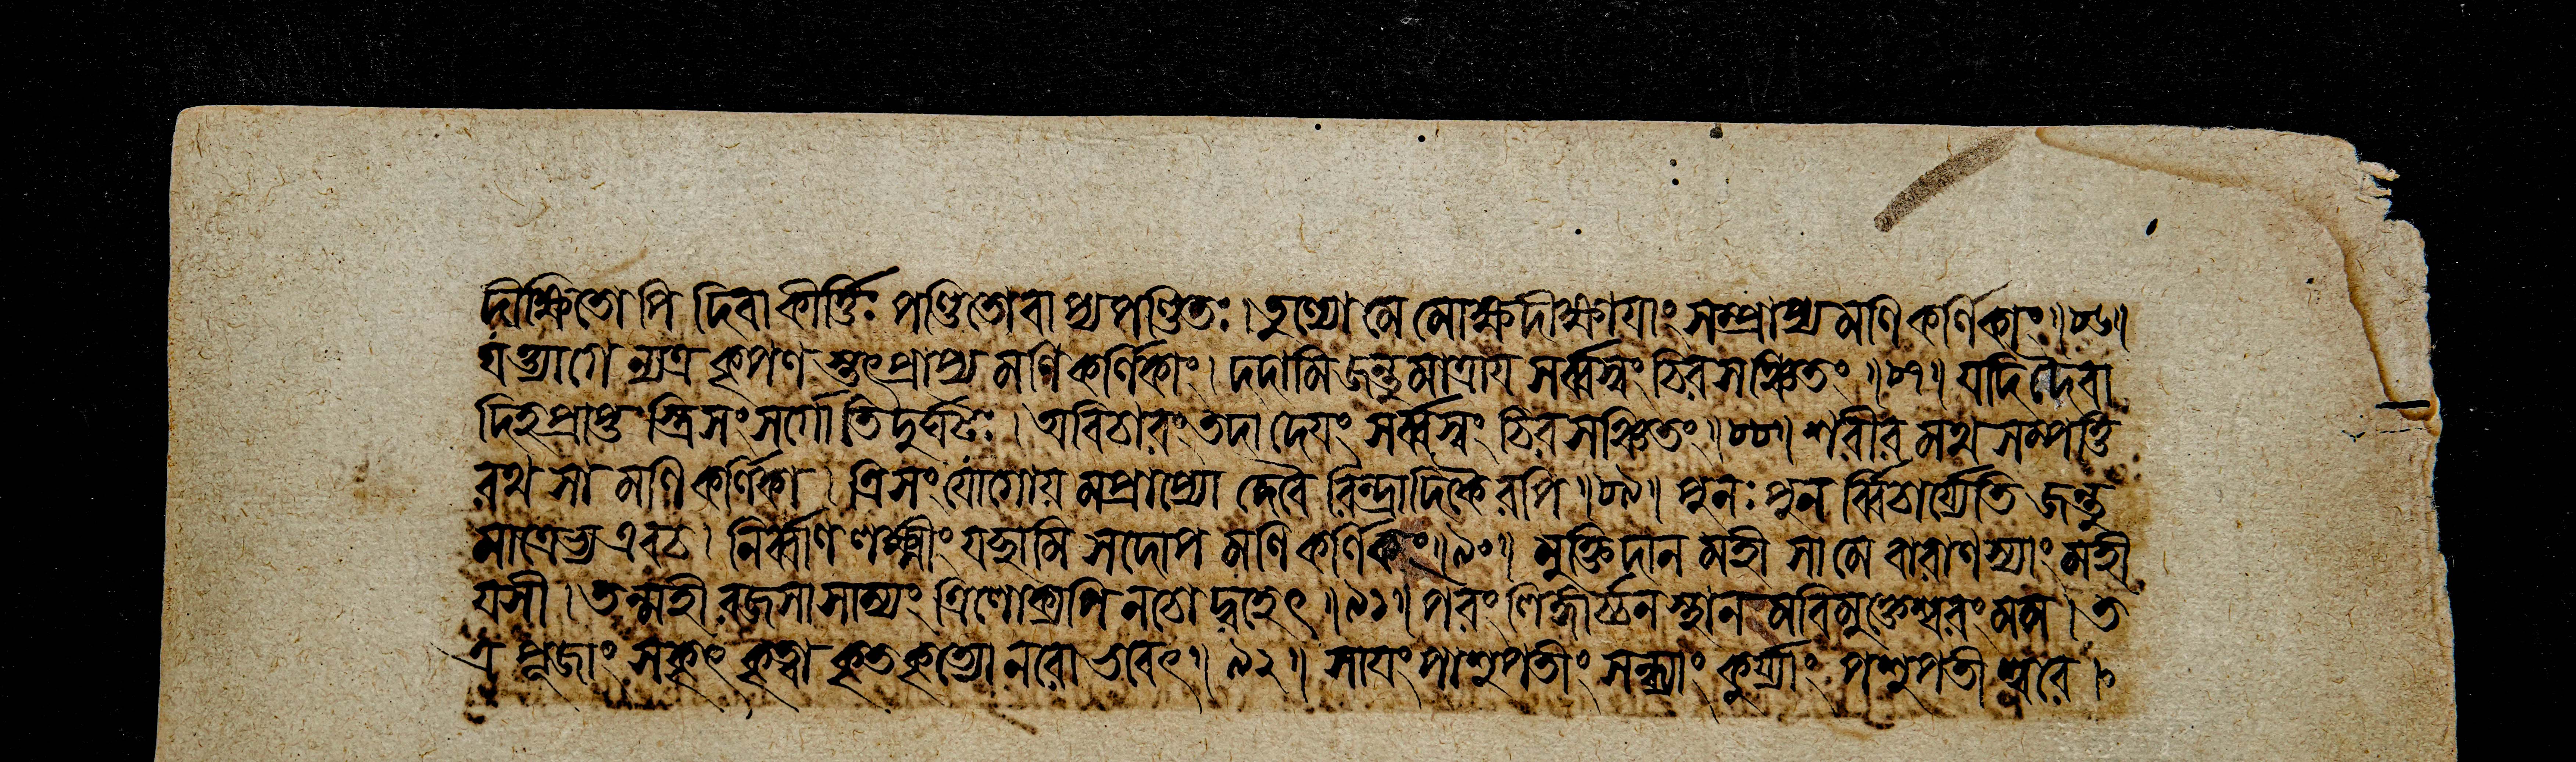 দীক্ষিতো পি দিবা কীর্ত্তিঃ পণ্ডিতো বা প্যপণ্ডিতঃ । তুল্যো মে মোক্ষদীক্ষায়াং সম্প্রাপ্য মণি কর্ণিকাং ॥ ৮৬॥
যত্ত্যাগে ন্যত্র কৃপণ স্তৎপ্রাপ্য মণি কর্ণিকাং । দদামি জন্তুমাত্রায় সর্ব্বস্বং চিরসঞ্চিতং ॥ ৮৭॥ যদি দৈবা
দিহ প্রাপ্ত স্ত্রিসংসর্গো তিদুর্ঘটঃ । অবিচারং তদা দেয়ং সর্ব্বস্বং চিরসঞ্চিতং ॥ ৮৮॥ শরীর মথ সম্পত্তি
রথ সা মণি কর্ণিকা । ত্রিসংযোগোয় মপ্রাপ্যো দেবৈ রিন্দ্রাদিকৈ রপি ॥ ৮৯॥ পুনঃ পুন র্ব্বিচার্য্যেতি জন্তু
মাত্রেভ্য এবচ । নির্ব্বাণ লক্ষ্মীং যচ্ছামি সদোপ মণি কর্ণিকাং ॥ ৯০॥ মুক্তিদান মহী সা মে বারাণস্যাং মহী
য়সী । তন্মহী রজসা সাম্যং ত্রিলোক্যপি নচো দ্বহেৎ ॥ ৯১॥ পরং লিঙ্গার্চ্চন স্থান মবিমুক্তেশ্বরং মম । ত
ত্র পূজাং সকৃৎ কৃত্বা কৃতকৃত্যো নরো ভবেৎ ॥ ৯২ ॥ সায়ং পাশুপতীং সন্ধ্যাং কুর্য্যাং পশুপতী শ্বরে ।